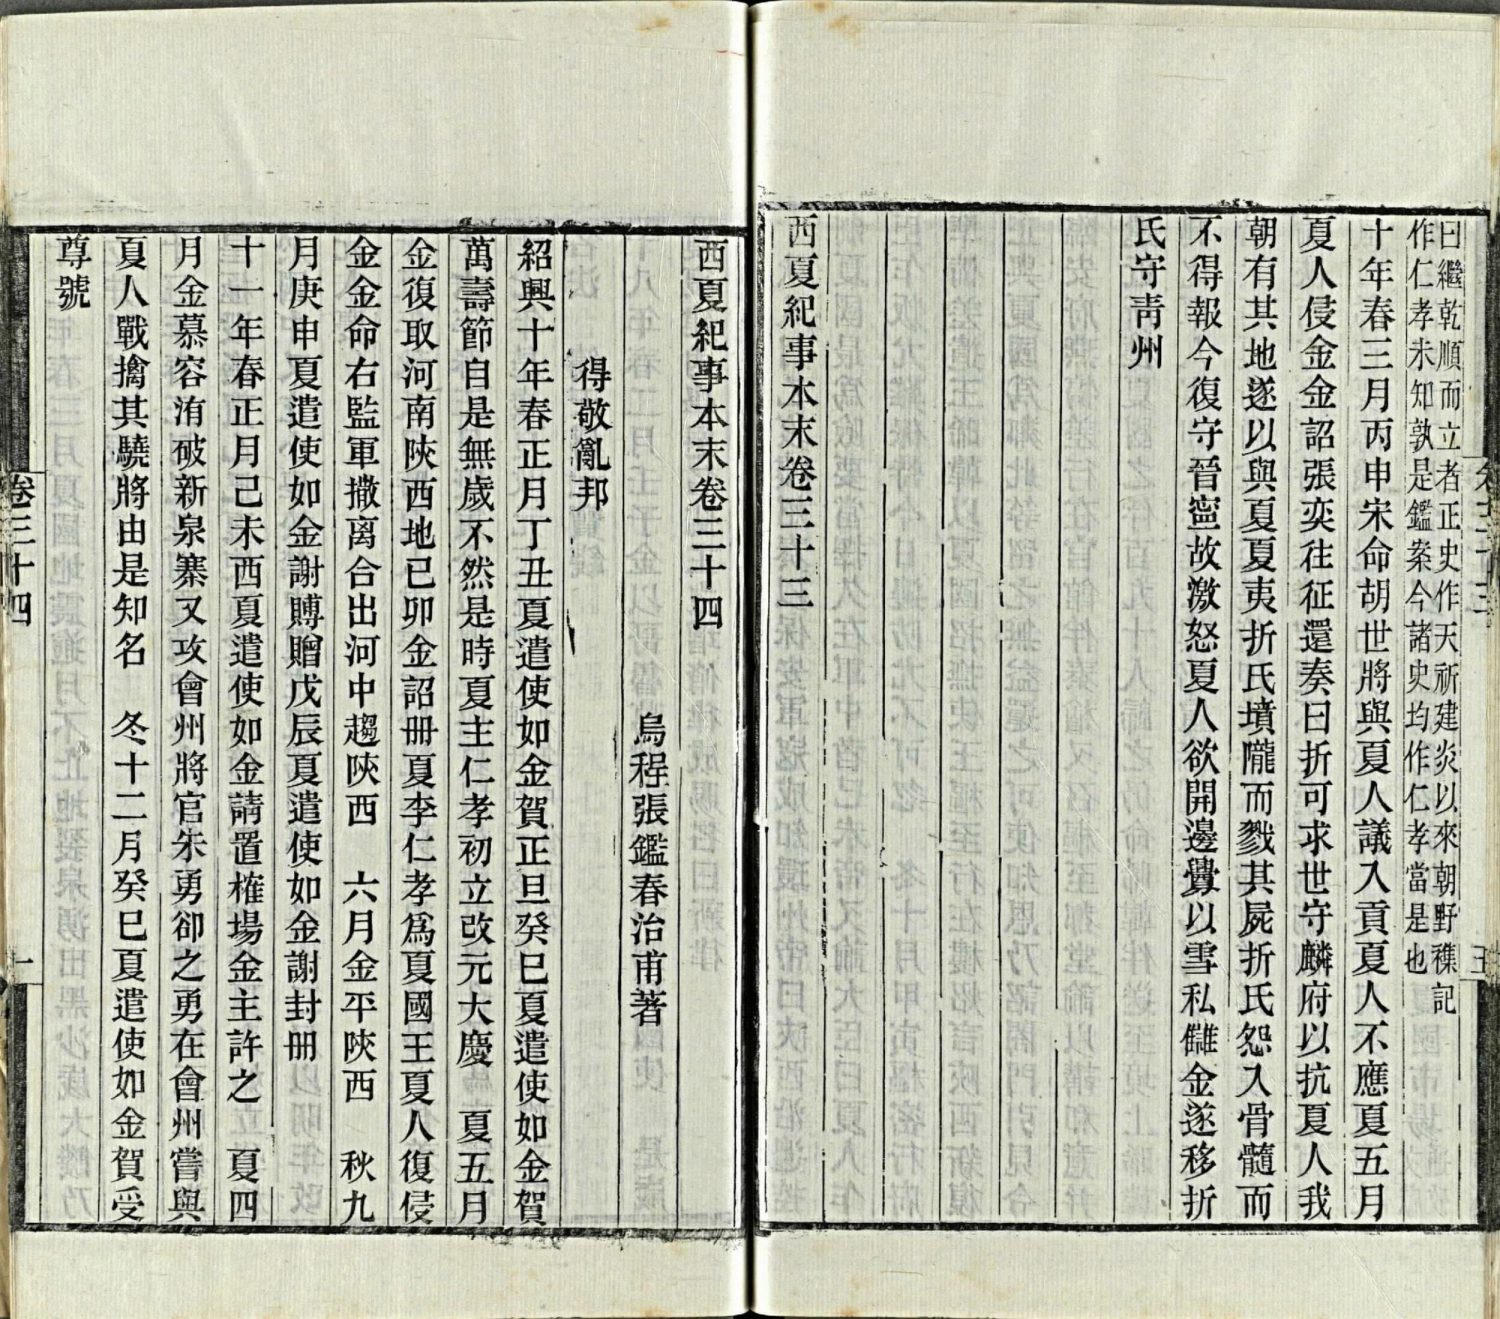 曰繼乾順而立者正史作天祈建炎以來朝野襍記
作仁孝未知孰是鑑案今諸史均作仁孝當是也
十年春三月丙申宋命胡世將與夏人議入貢夏人不應夏五月
夏人侵金金詔張奕往征還奏曰折可求世守麟府以抗夏人我
朝有其地遂以與夏夏夷折氏墳隴而戮其屍折氏怨入骨髓而
不得報今復守晉寧故激怒夏人欲開邊釁以雪私讎金遂移折
氏守靑州
西夏紀事本末卷三十三
西夏紀事本末卷三十四
烏程張鑑春治甫著
得敬亂邦
紹興十年春正月丁丑夏遣使如金賀正旦癸巳夏遣使如金賀
萬壽節自是無歲不然是時夏主仁孝初立改元大慶　夏五月
金復取河南陝西地己卯金詔冊夏李仁孝爲夏國王夏人復侵
金金命右監軍撒离合出河中趨陝西　六月金平陝西　秋九
月庚申夏遣使如金謝賻贈戊辰夏遣使如金謝封冊
十一年春正月己未西夏遣使如金請置榷場金主許之　夏四
月金慕容洧破新泉寨又攻會州將官朱勇卻之勇在會州嘗與
夏人戰擒其驍將由是知名　冬十二月癸巳夏遣使如金賀受
尊號
卷三十四
一